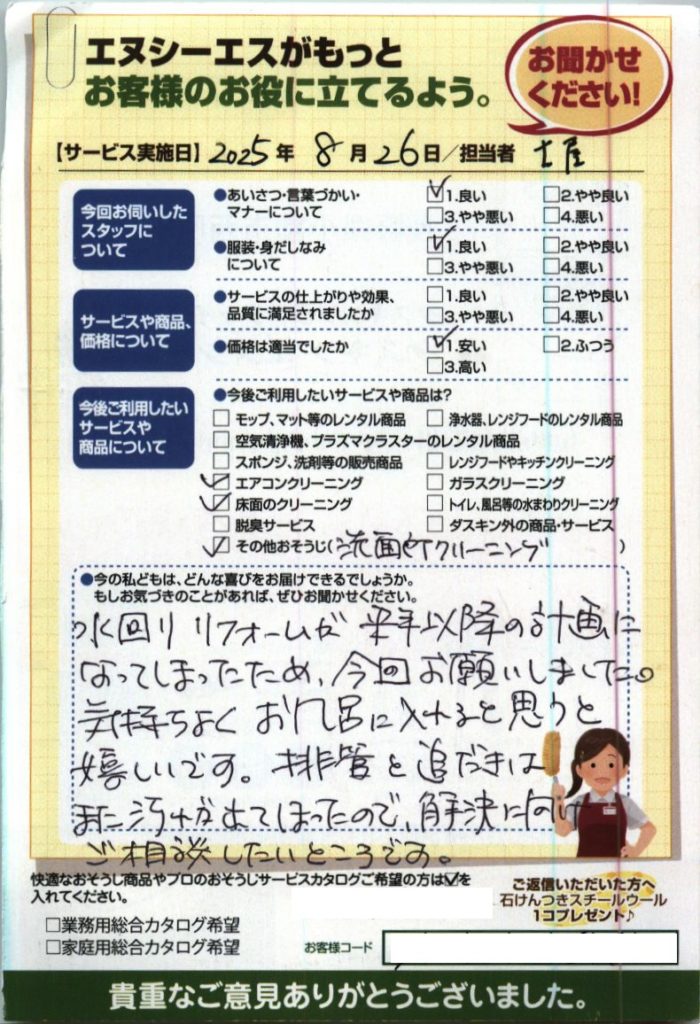 エヌシーエスがもっと
お客様のお役に立てるよう。
お聞かせ
ください!
【サービス実施日】2025年 8月26日/担当者 土屋
今回お伺いした
スタッフに
ついて
●あいさつ・言葉づかい・
マナーについて
☑1.良い □2.やや良い
□3.やや悪い □4.悪い
●服装・身だしなみ
について
☑1.良い □2.やや良い
□3.やや悪い □4.悪い
サービスや商品、
価格について
●サービスの仕上がりや効果、
品質に満足されましたか
□1.良い □2.やや良い
□3.やや悪い □4.悪い
●価格は適当でしたか
☑1.安い □2.ふつう
□3.高い
今後ご利用したい
サービスや
商品について
●今後ご利用したいサービスや商品は?
□モップ、マット等のレンタル商品 □浄水器、レンジフードのレンタル商品
□空気清浄機、プラズマクラスターのレンタル商品
□スポンジ、洗剤等の販売商品 □レンジフードやキッチンクリーニング
☑エアコンクリーニング □ガラスクリーニング
☑床面のクリーニング □トイレ、風呂等の水まわりクリーニング
□脱臭サービス □ダスキン外の商品・サービス
☑その他おそうじ(洗面台クリーニング)
●今の私どもは、どんな喜びをお届けできるでしょうか。
もしお気づきのことがあれば、ぜひお聞かせください。
水回りリフォームが来年以降の計画に
なってしまったため、今回お願いしました。
気持ちよくお風呂に入れると思うと
嬉しいです。排管と追だきは
また汚れが出てしまったので、解決に向け
ご相談したいところです。
快適なおそうじ商品やプロのおそうじサービスカタログご希望の方は☑を
入れてください。
□業務用総合カタログ希望
□家庭用総合カタログ希望
ご返信いただいた方へ
石けんつきスチールウール
1コプレゼント♪
お客様コード
貴重なご意見ありがとうございました。